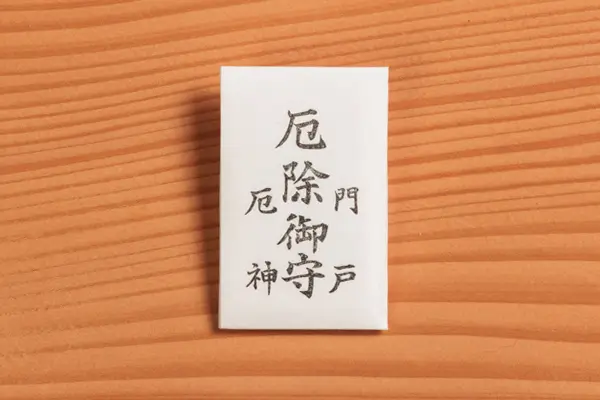 厄除御守
門戸
厄神